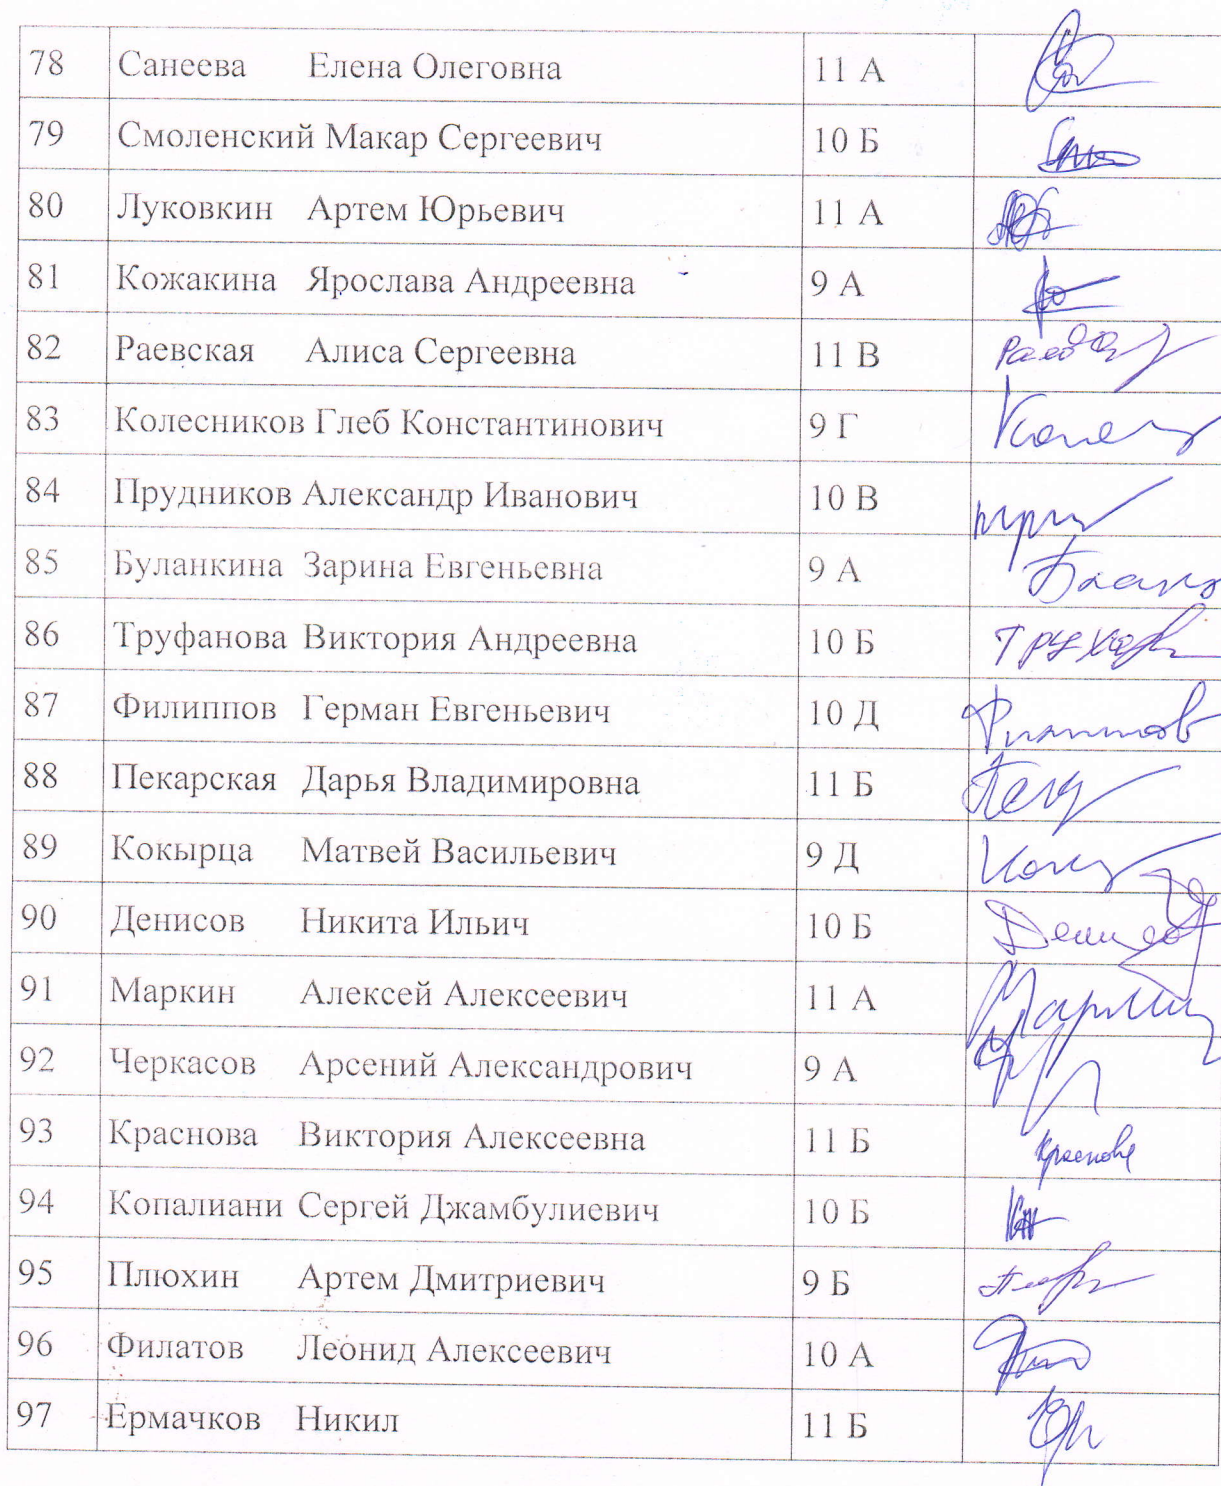 78 Санеева Елена Олеговна 11 А
79 Смоленский Макар Сергеевич 10 Б
80 Луковкин Артем Юрьевич 11 А
81 Кожакина Ярослава Андреевна 9 А
82 Раевская Алиса Сергеевна 11 В
83 Колесников Глеб Константинович 9 Г
84 Прудников Александр Иванович 10 В
85 Буланкина Зарина Евгеньевна 9 А
86 Труфанова Виктория Андреевна 10 Б
87 Филиппов Герман Евгеньевич 10 Д
88 Пекарская Дарья Владимировна 11 Б
89 Кокырца Матвей Васильевич 9 Д
90 Денисов Никита Ильич 10 Б
91 Маркин Алексей Алексеевич 11 А
92 Черкасов Арсений Александрович 9 А
93 Краснова Виктория Алексеевна 11 Б
94 Копалиани Сергей Джамбулиевич 10 Б
95 Плюхин Артем Дмитриевич 9 Б
96 Филатов Леонид Алексеевич 10 А
97 Ермачков Никил 11 Б